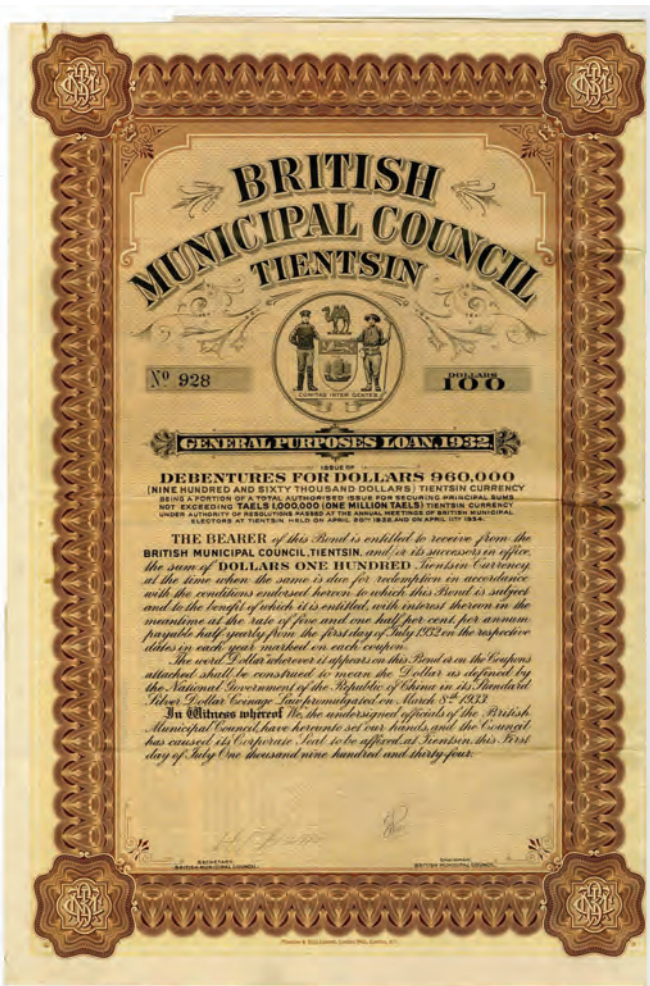 BRITISH
MUNICIPAL COUNCIL
TIENTSIN
COMITAS INTER GENTES
Nº 928
DOLLARS
100
GENERAL PURPOSES LOAN, 1932.
ISSUE OF
DEBENTURES FOR DOLLARS 960,000
(NINE HUNDRED AND SIXTY THOUSAND DOLLARS) TIENTSIN CURRENCY
BEING A PORTION OF A TOTAL AUTHORISED ISSUE FOR SECURING PRINCIPAL SUMS
NOT EXCEEDING TAELS 1,000,000 (ONE MILLION TAELS) TIENTSIN CURRENCY
UNDER AUTHORITY OF RESOLUTIONS PASSED AT THE ANNUAL MEETINGS OF BRITISH MUNICIPAL
ELECTORS AT TIENTSIN HELD ON APRIL 20TH 1932 AND ON APRIL 11TH 1934.
THE BEARER of this Bond is entitled to receive from the
BRITISH MUNICIPAL COUNCIL, TIENTSIN, and/or its successors in office,
the sum of DOLLARS ONE HUNDRED Tientsin Currency
at the time when the same is due for redemption in accordance
with the conditions endorsed hereon to which this Bond is subject
and to the benefit of which it is entitled, with interest thereon in the
meantime at the rate of five and one half per cent. per annum
payable half yearly from the first day of July 1932 on the respective
dates in each year marked on each coupon.
The word "Dollar" wherever it appears on this Bond or on the Coupons
attached shall be construed to mean the Dollar as defined by
the National Government of the Republic of China in its Standard
Silver Dollar Coinage Law promulgated on March 8th 1933.
In Witness whereof We, the undersigned officials of the British
Municipal Council, have hereunto set our hands, and the Council
has caused its Corporate Seal to be affixed, at Tientsin, this First
day of July One thousand nine hundred and thirty-four.
SECRETARY,
BRITISH MUNICIPAL COUNCIL.
CHAIRMAN,
BRITISH MUNICIPAL COUNCIL.